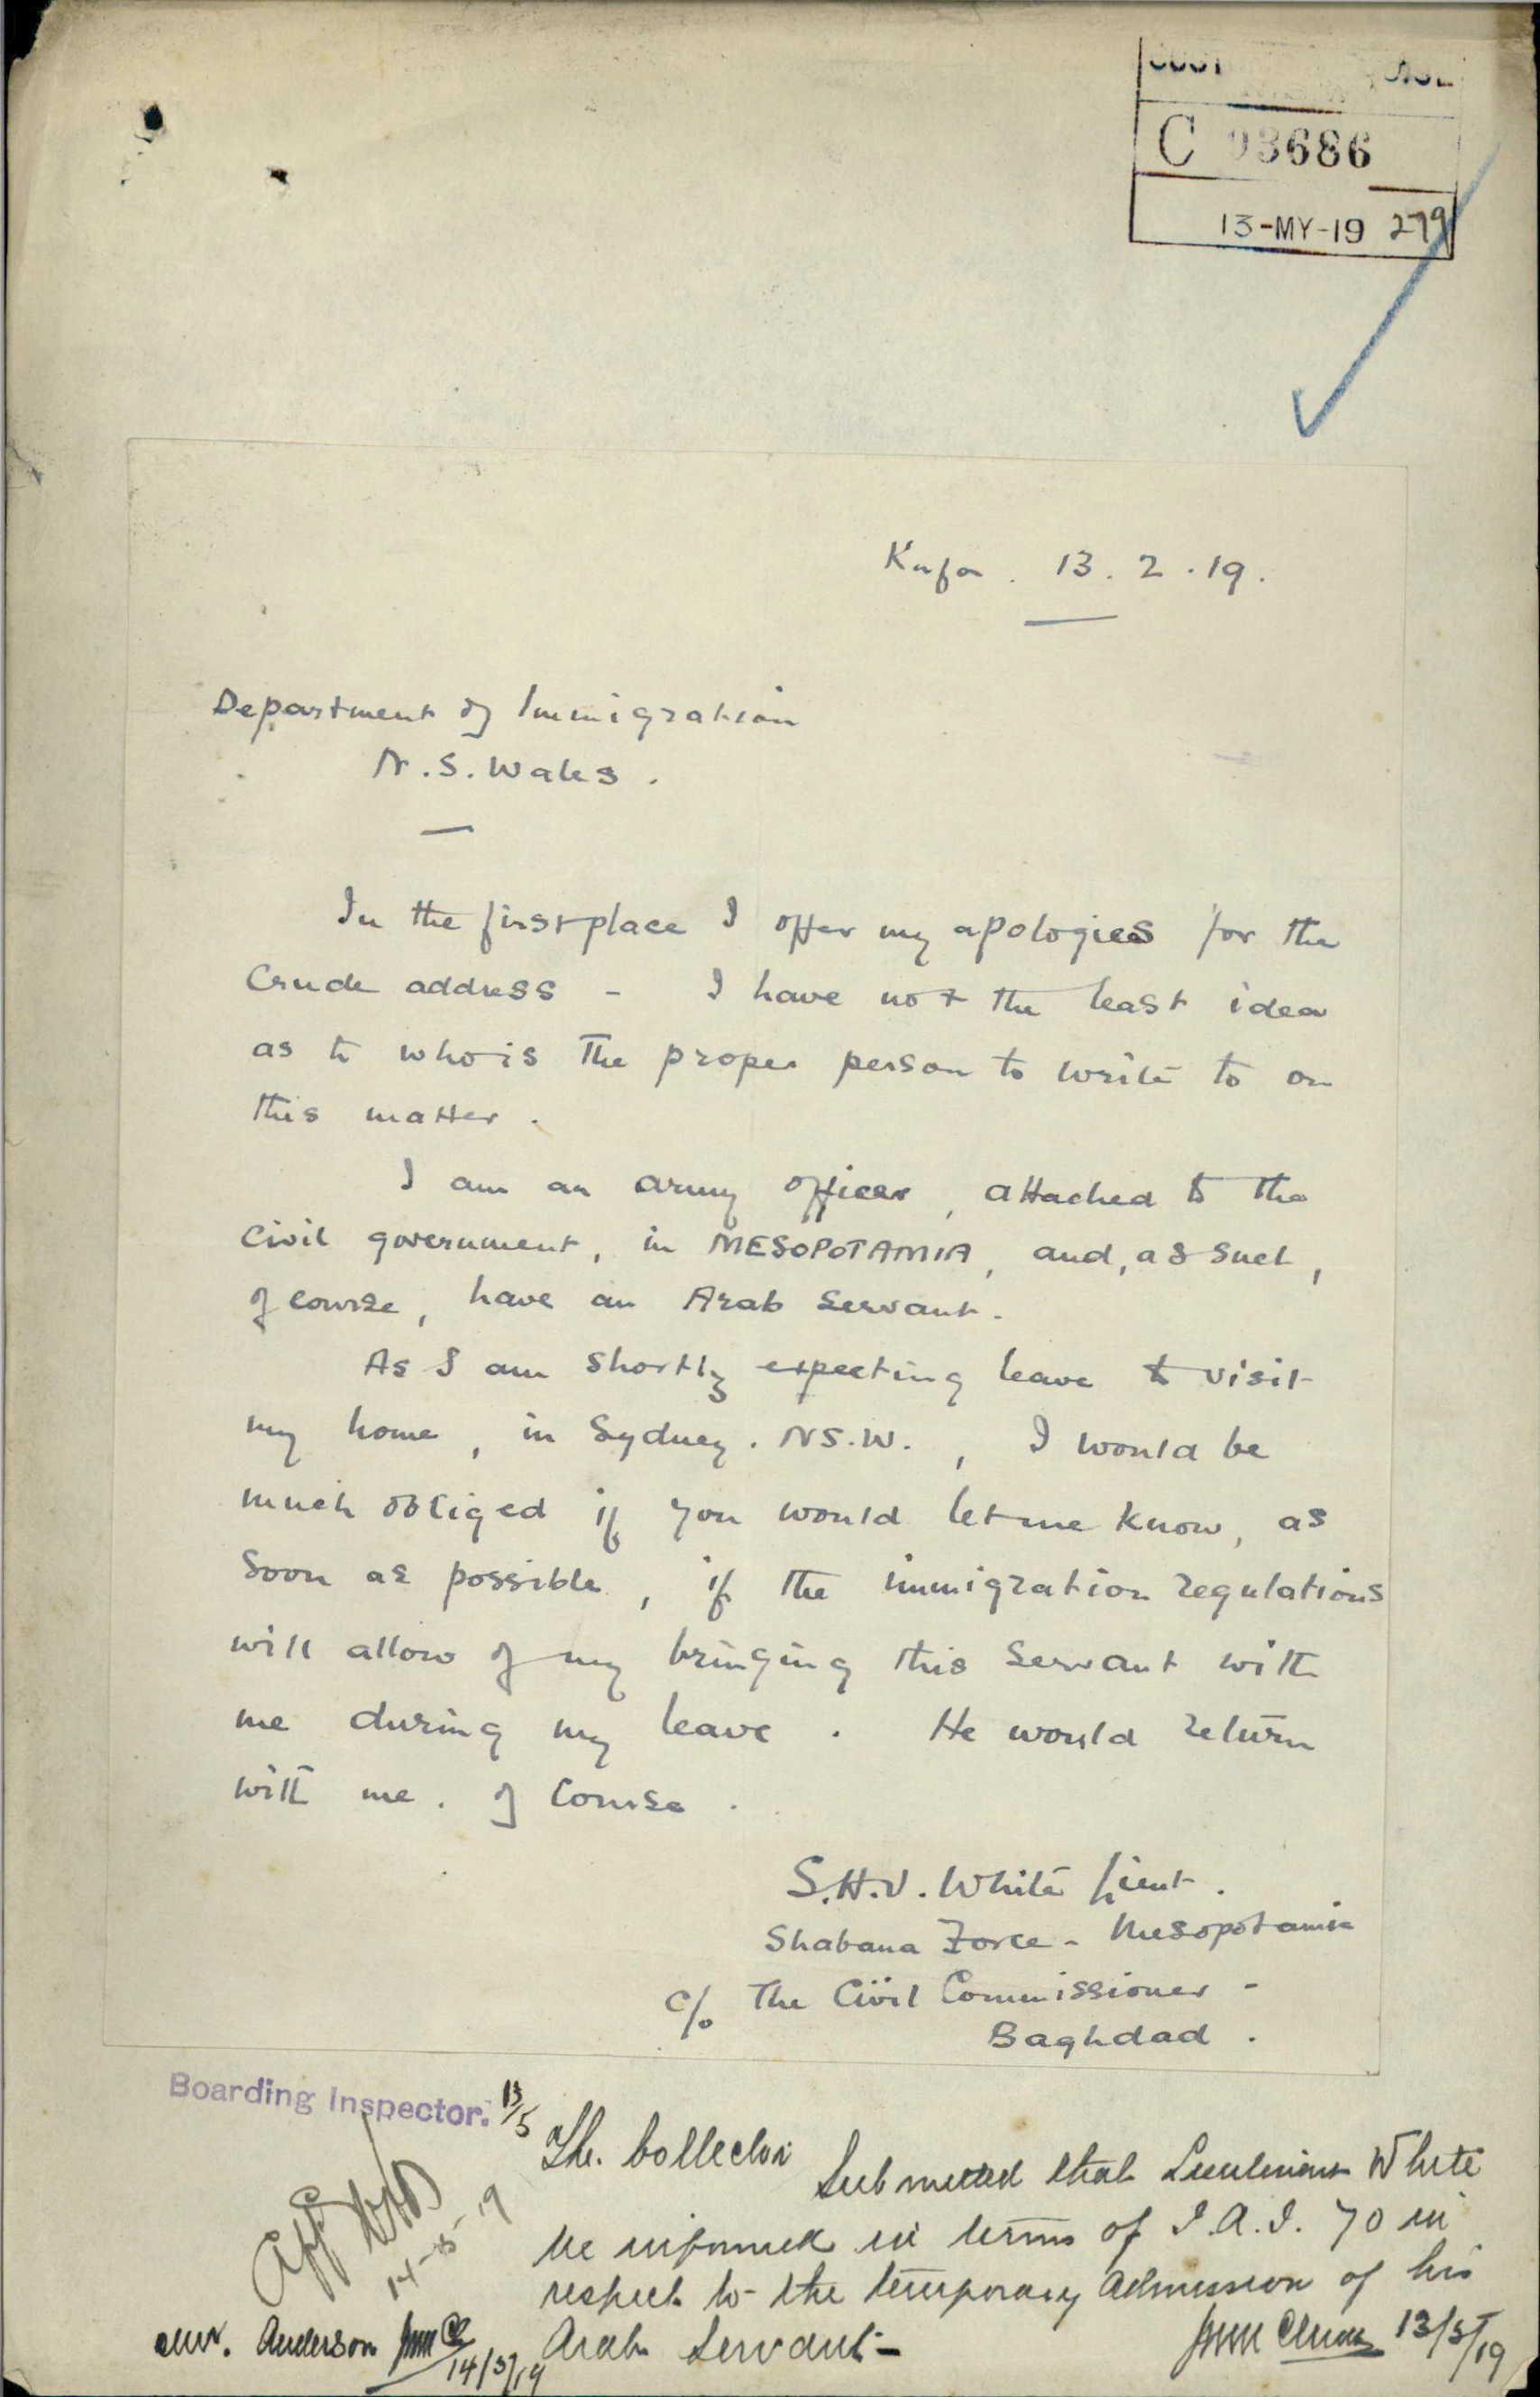 C 93686
13-MY-19 279
Kufa. 13.2.19.
Department of Immigration
N.S. Wales.
In the first place I offer my apologies for the
Crude address - I have not the least idea
as to who is the proper person to write to on
this matter.
I am an army officer, attached to the
Civil government, in MESOPOTAMIA, and, as such,
of course, have an Arab servant.
As I am shortly expecting leave to visit
my home, in Sydney. N.S.W., I would be
much obliged if you would let me know, as
soon as possible, if the immigration regulations
will allow of my bringing this servant with
me during my leave. He would return
with me. of course.
S.H.V. White Lieut.
Shabana Force - Mesopotamia
c/o The Civil Commissioner -
Baghdad.
Boarding Inspector. 13/5
The Collector
Submitted that Lieutenant White
be informed in terms of I.A.I. 70 in
respect to the temporary admission of his
Arab Servant -
13/5/19
14-5-19
Mr. Anderson
14/5/19